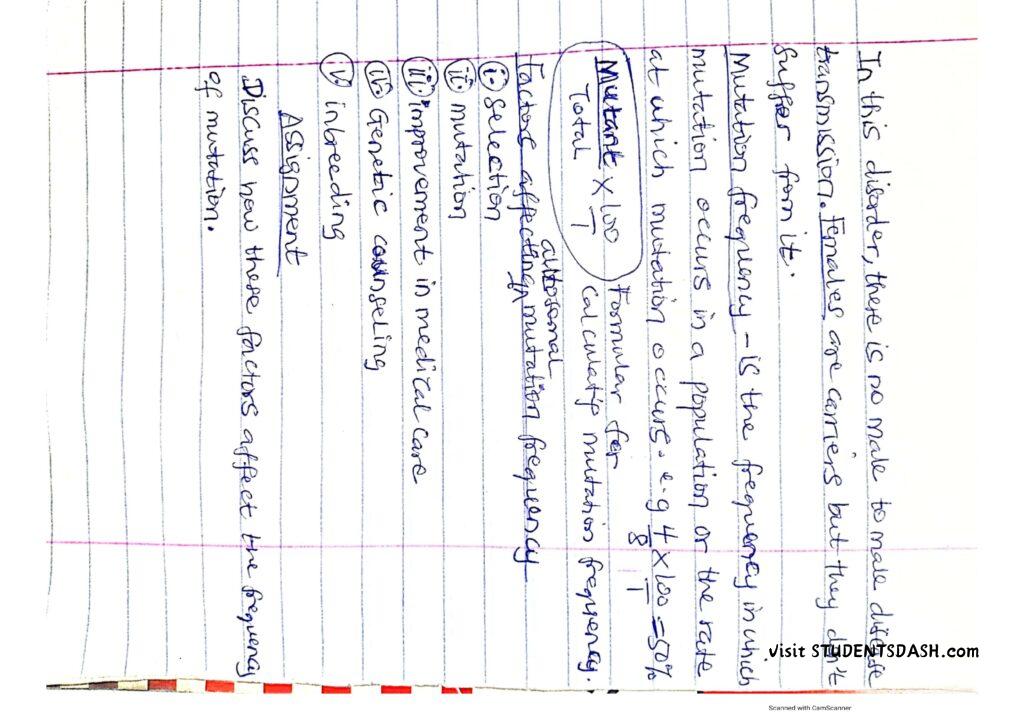 In this disorder, there is no male to male disease
transmission. Females are carriers but they don't
suffer from it.
Mutation frequency - is the frequency in which
mutation occurs in a population or the rate
at which mutation occurs. e.g 4/8 x 100/1 = 50%
Mutant/Total x 100/1 Formular for
calculatig mutation frequency.
autosomal
Factors affecting mutation frequency
i. selection
ii. mutation
iii. improvement in medical care
iv. Genetic counseling
v. inbreeding
Assignment
Discuss how these factors affect the frequency
of mutation.
visit STUDENTSDASH.com
Scanned with CamScanner